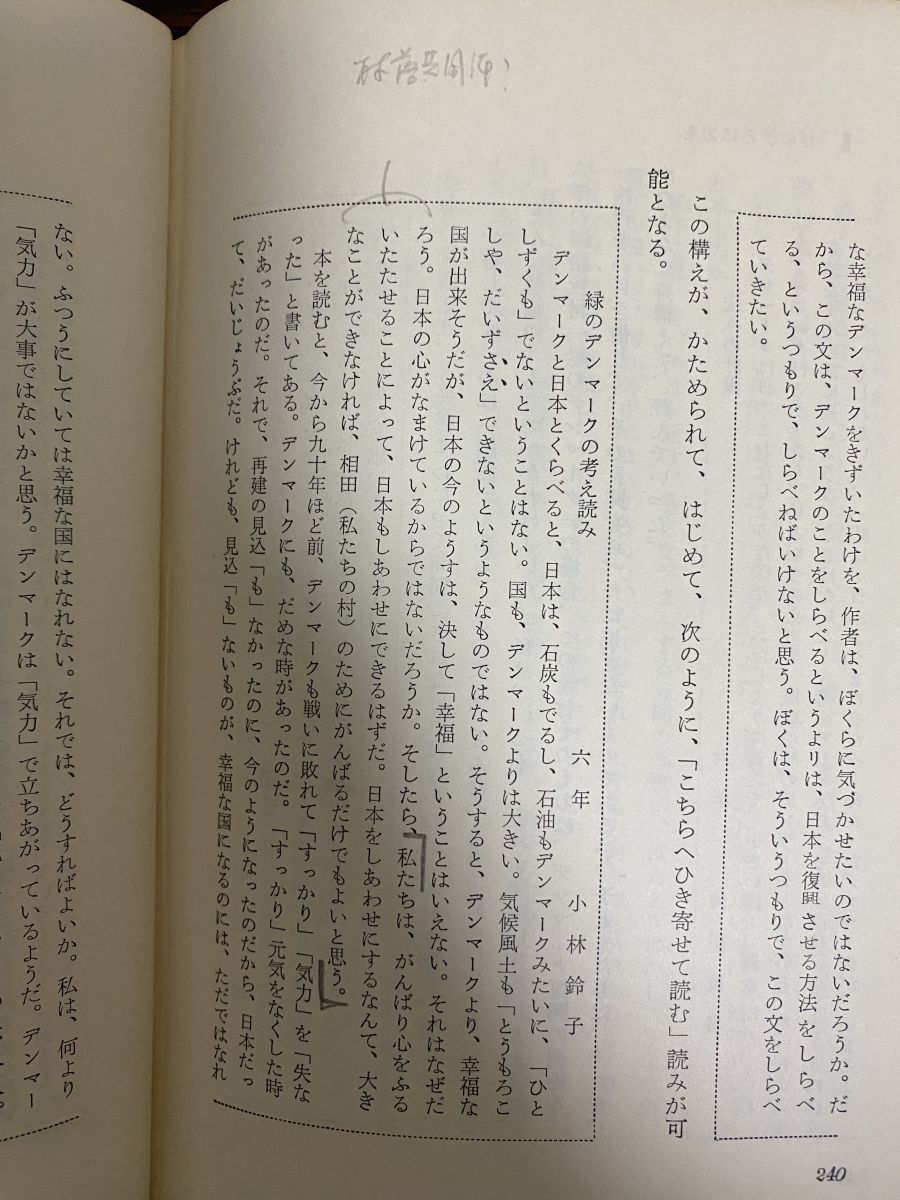 な幸福なデンマークをきずいたわけを、作者は、ぼくらに気づかせたいのではないだろうか。だ
から、この文は、デンマークのことをしらべるというよりは、日本を復興させる方法をしらべ
る、というつもりで、しらべねばいけないと思う。ぼくは、そういうつもりで、この文をしらべ
ていきたい。
この構えが、かためられて、はじめて、次のように、「こちらへひき寄せて読む」読みが可
能となる。
緑のデンマークの考え読み
六年 小林鈴子
デンマークと日本とくらべると、日本は、石炭もでるし、石油もデンマークみたいに、「ひと
しずくも」でないということはない。国も、デンマークよりは大きい。気候風土も「とうもろこ
しや、だいずさえ」できないというようなものではない。そうすると、デンマークより、幸福な
国が出来そうだが、日本の今のようすは、決して「幸福」ということはいえない。それはなぜだ
ろう。日本の心がなまけているからではないだろうか。そしたら、私たちは、がんばり心をふる
いたたせることによって、日本もしあわせにできるはずだ。日本をしあわせにするなんて、大き
なことができなければ、相田（私たちの村）のためにがんばるだけでもよいと思う。
本を読むと、今から九十年ほど前、デンマークも戦いに敗れて「すっかり」「気力」を「失な
った」と書いてある。デンマークにも、だめな時があったのだ。「すっかり」元気をなくした時
があったのだ。それで、再建の見込「も」なかったのに、今のようになったのだから、日本だっ
て、だいじょうぶだ。けれども、見込「も」ないものが、幸福な国になるのには、ただではなれ
240
ない。ふつうにしていては幸福な国にはなれない。それでは、どうすればよいか。私は、何より
「気力」が大事ではないかと思う。デンマークは「気力」で立ちあがっているようだ。デンマー